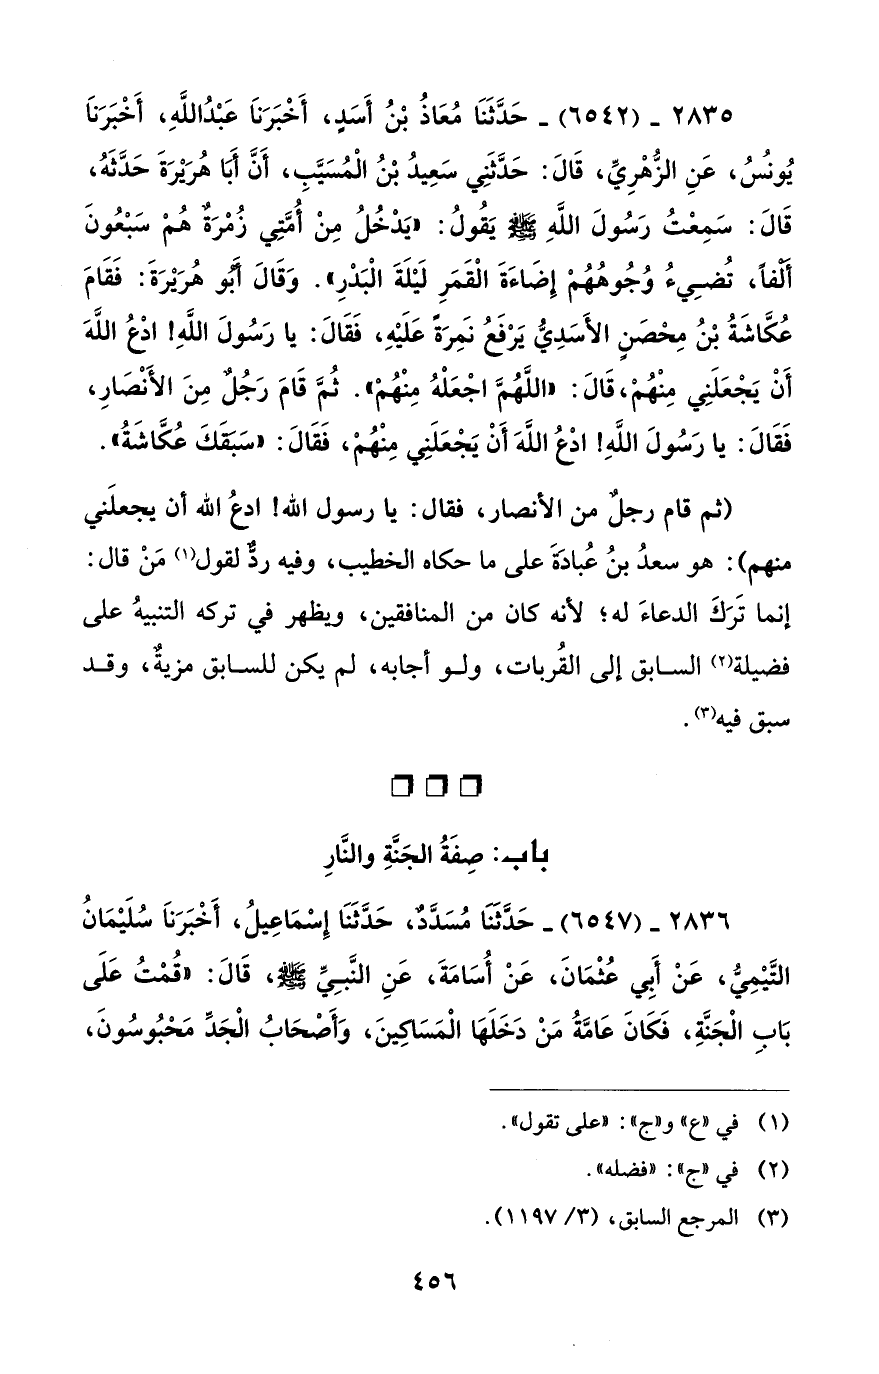 ٢٨٣٥ ـ (٦٥٤٢) ـ حَدَّثَنَا مُعَاذُ بْنُ أَسَدٍ، أَخْبَرَنَا عَبْدُاللَّهِ، أَخْبَرَنَا
يُونُسُ، عَنِ الزُّهْرِيِّ، قَالَ: حَدَّثَنِي سَعِيدُ بْنُ الْمُسَيَّبِ، أَنَّ أَبَا هُرَيْرَةَ حَدَّثَهُ،
قَالَ: سَمِعْتُ رَسُولَ اللَّهِ ﷺ يَقُولُ: «يَدْخُلُ مِنْ أُمَّتِي زُمْرَةٌ هُمْ سَبْعُونَ
أَلْفاً، تُضِيءُ وُجُوهُهُمْ إِضَاءَةَ الْقَمَرِ لَيْلَةَ الْبَدْرِ». وَقَالَ أَبُو هُرَيْرَةَ: فَقَامَ
عُكَّاشَةُ بْنُ مِحْصَنٍ الأَسَدِيُّ يَرْفَعُ نَمِرَةً عَلَيْهِ، فَقَالَ: يا رَسُولَ اللَّهِ! ادْعُ اللَّهَ
أَنْ يَجْعَلَنِي مِنْهُمْ، قَالَ: «اللَّهُمَّ اجْعَلْهُ مِنْهُمْ». ثُمَّ قَامَ رَجُلٌ مِنَ الأَنْصَارِ،
فَقَالَ: يا رَسُولَ اللَّهِ! ادْعُ اللَّهَ أَنْ يَجْعَلَنِي مِنْهُمْ، فَقَالَ: «سَبَقَكَ عُكَّاشَةُ».
(ثم قام رجلٌ من الأنصار، فقال: يا رسول الله! ادعُ الله أن يجعلَني
منهم): هو سعدُ بنُ عُبادَةَ على ما حكاه الخطيب، وفيه ردٌّ لقول(١) مَنْ قال:
إنما تَرَكَ الدعاءَ له؛ لأنه كان من المنافقين، ويظهر في تركه التنبيهُ على
فضيلة(٢) السابق إلى القُربات، ولو أجابه، لم يكن للسابق مزيةٌ، وقد
سبق فيه(٣).
❒ ❒ ❒
باب: صِفَةُ الجَنَّةِ والنَّارِ
٢٨٣٦ ـ (٦٥٤٧) ـ حَدَّثَنَا مُسَدَّدٌ، حَدَّثَنَا إِسْمَاعِيلُ، أَخْبَرَنَا سُلَيْمَانُ
التَّيْمِيُّ، عَنْ أَبِي عُثْمَانَ، عَنْ أُسَامَةَ، عَنِ النَّبِيِّ ﷺ، قَالَ: «قُمْتُ عَلَى
بَابِ الْجَنَّةِ، فَكَانَ عَامَّةُ مَنْ دَخَلَهَا الْمَسَاكِينَ، وَأَصْحَابُ الْجَدِّ مَحْبُوسُونَ،
(١) في «ع» و«ج»: «على تقول».
(٢) في «ج»: «فضله».
(٣) المرجع السابق، (٣/ ١١٩٧).
٤٥٦